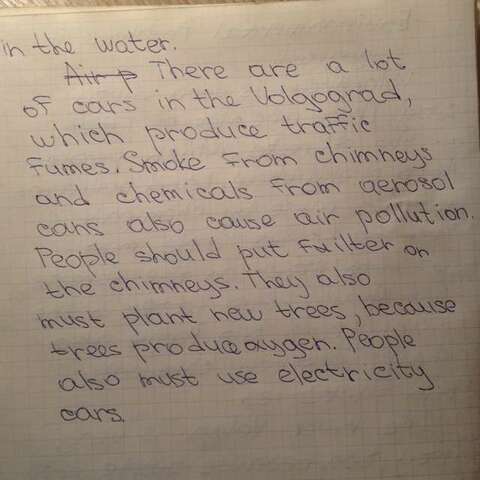 in the water.
Air p There are a lot
of cars in the Volgograd,
which produce traffic
fumes. Smoke from chimneys
and chemicals from aerosol
cans also cause air pollution.
People should put fuilter on
the chimneys. They also
must plant new trees, because
trees produce oxygen. People
also must use electricity
cars.